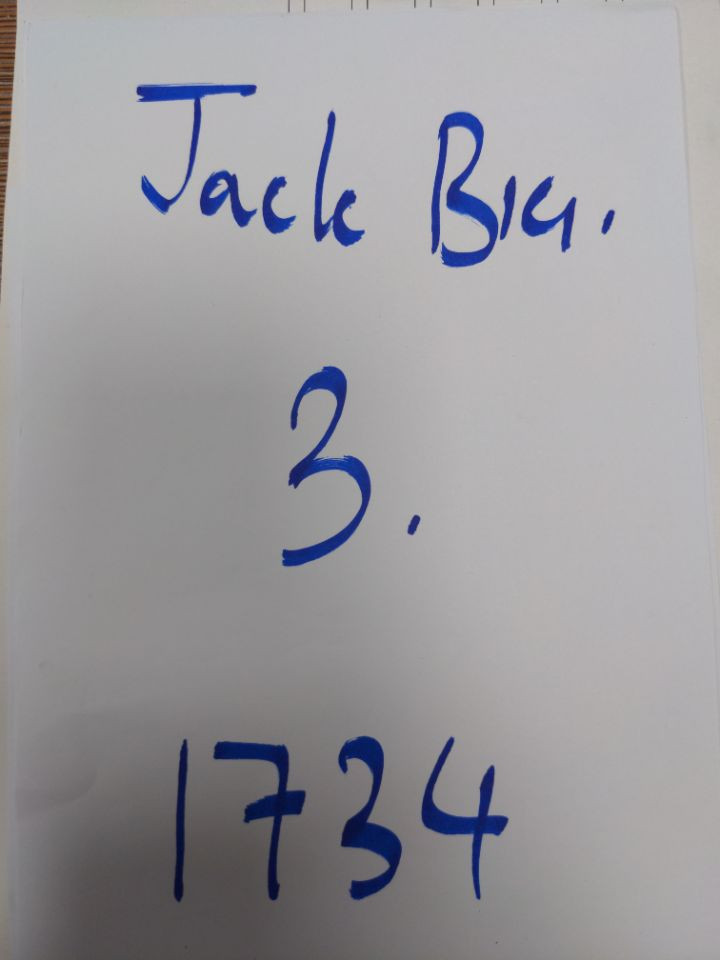 Jack Bra.
3.
1734